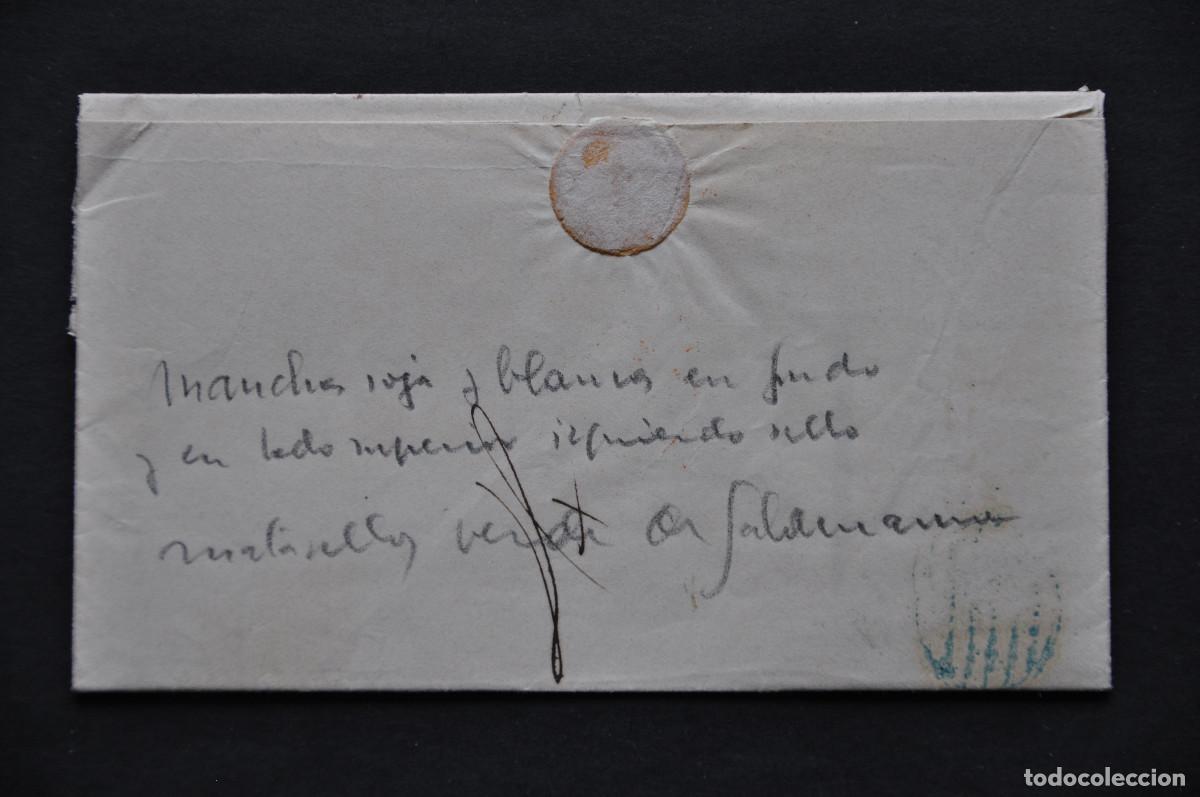 Manchas roja y blanca en fondo
y en lado superior izquierdo sello
matasellos verde de Salamanca
todocoleccion